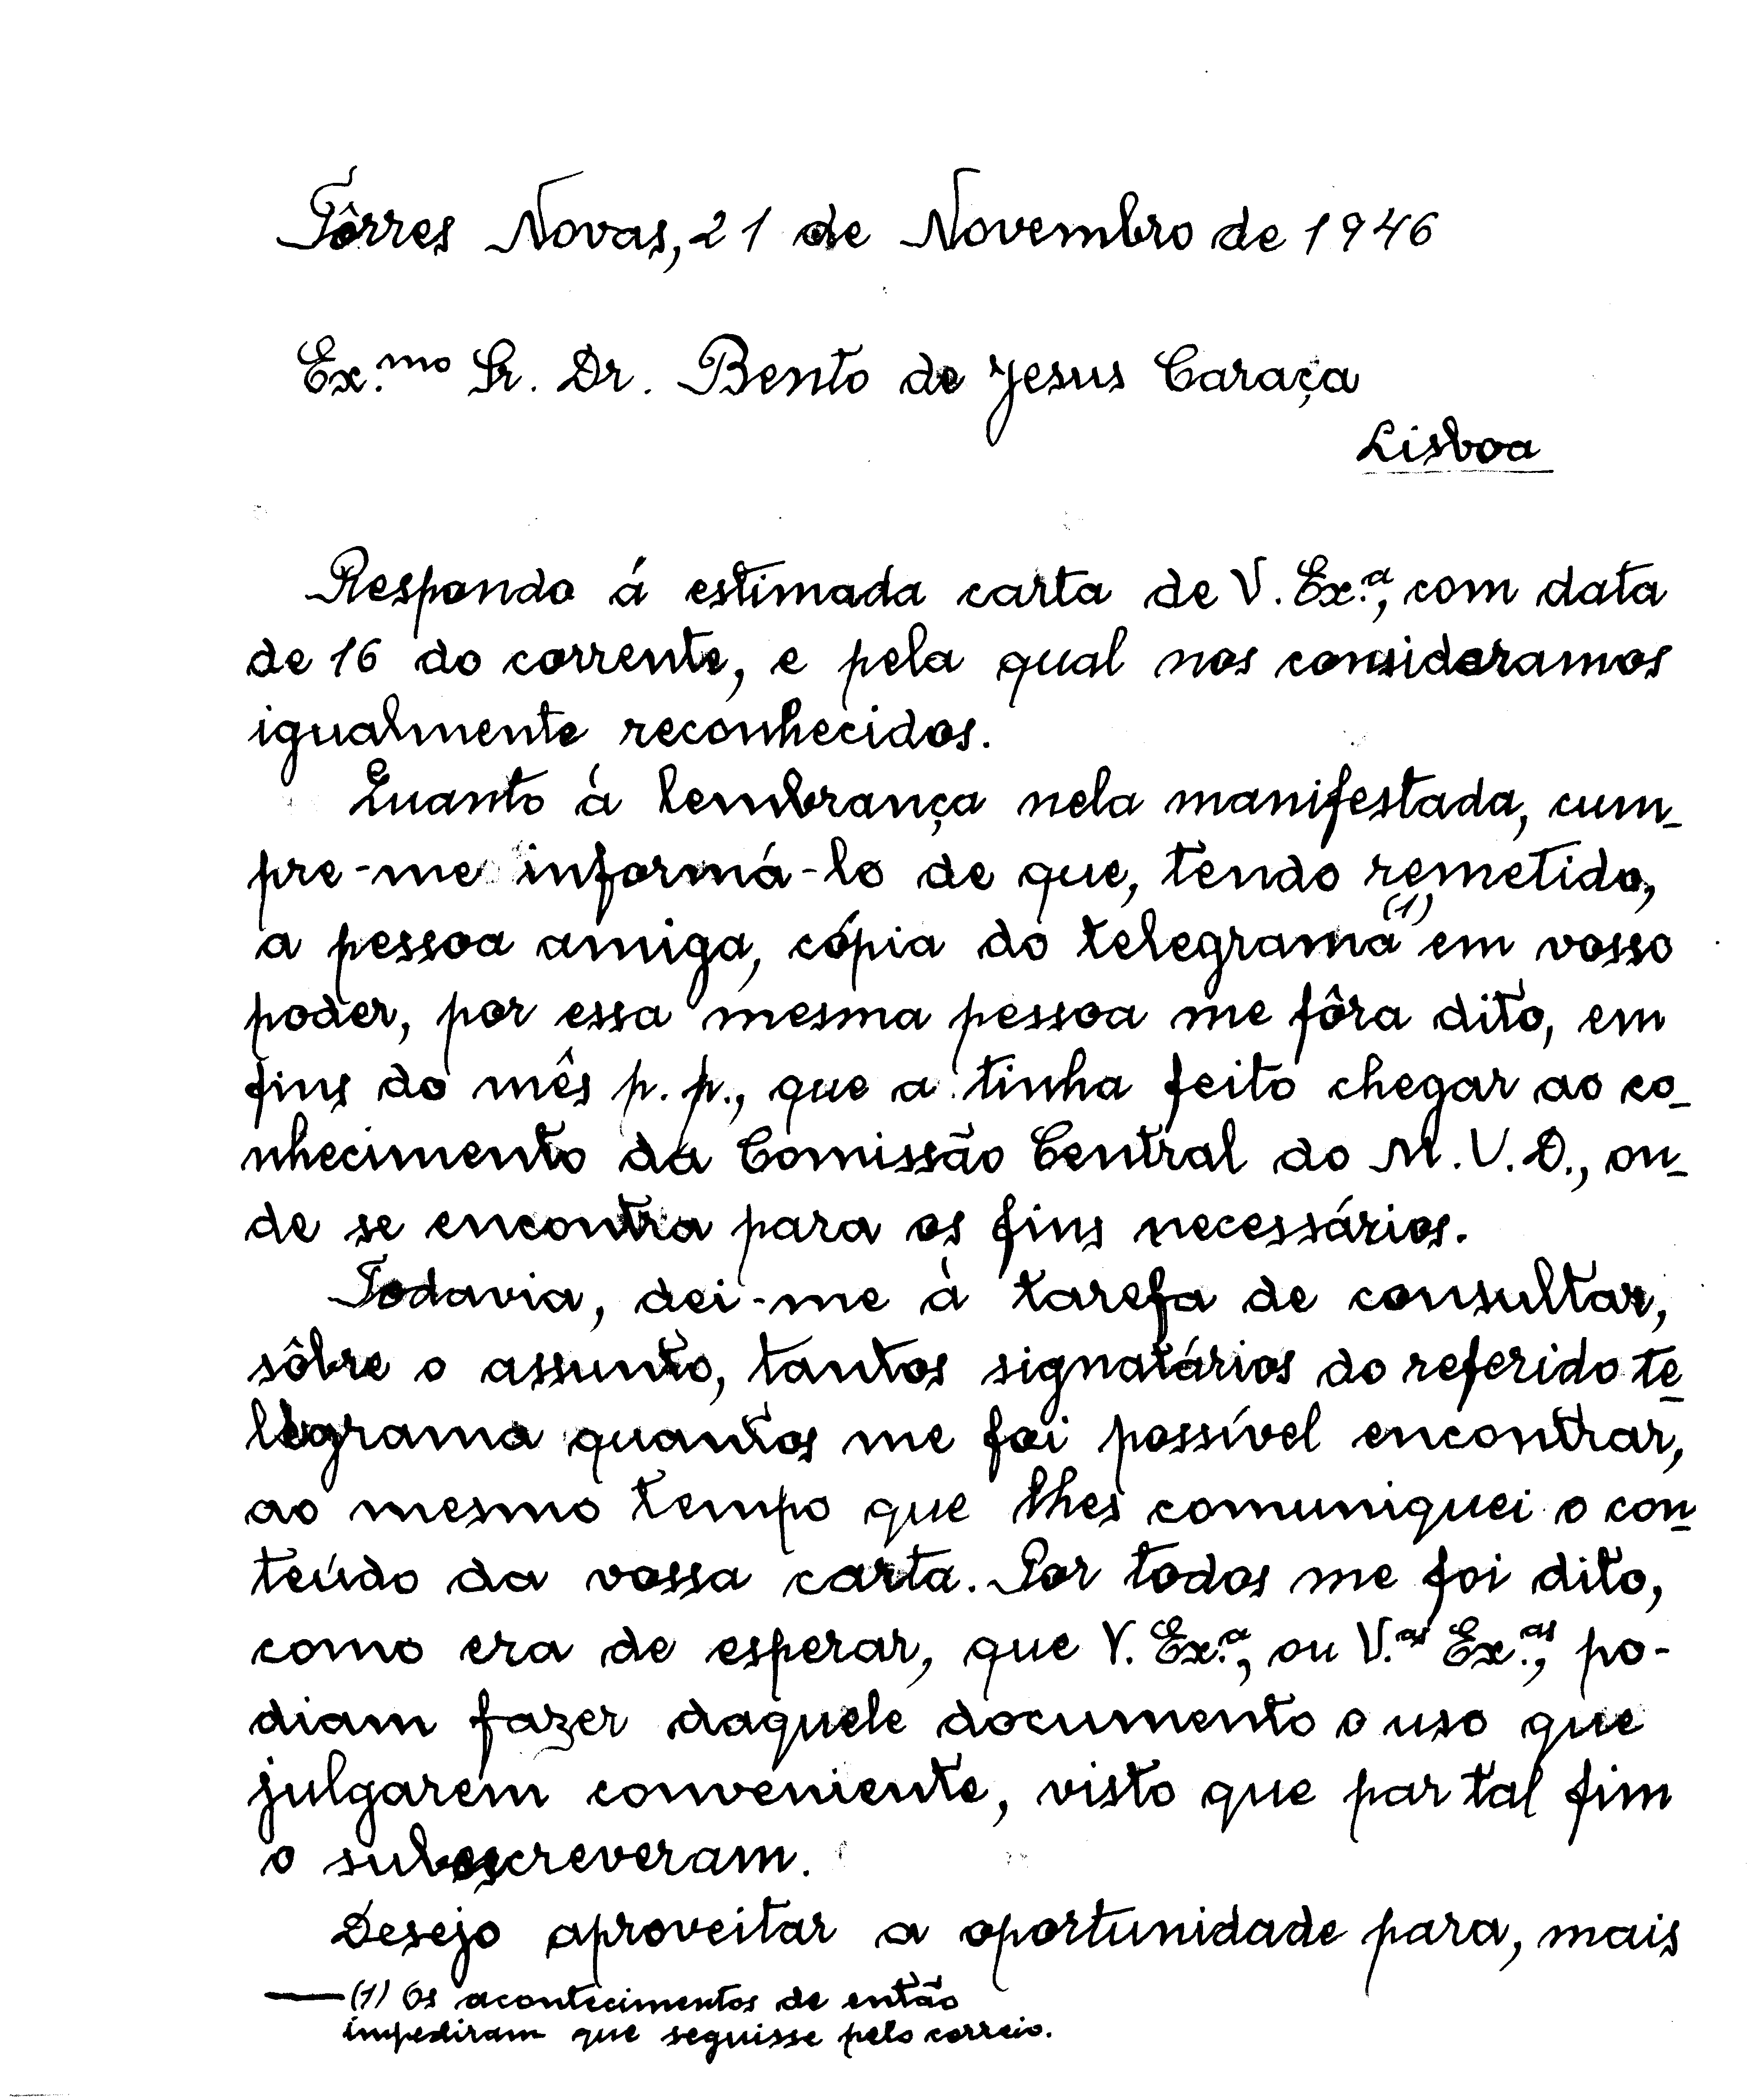 Tôrres Novas, 21 de Novembro de 1946
Ex.mo Sr. Dr. Bento de Jesus Caraça
Lisboa
Respondo á estimada carta de V. Ex.ª, com data
de 16 do corrente, e pela qual nos consideramos
igualmente reconhecidos.
Quanto à lembrança nela manifestada, cum-
pre-me informá-lo de que, tendo remetido,
a pessoa amiga, cópia do telegrama (1) em vosso
poder, por essa mesma pessoa me fôra dito, em
fins do mês p. p., que a tinha feito chegar ao co-
nhecimento da Comissão Central do M.V.D., on-
de se encontra para os fins necessários.
Todavia, dei-me à tarefa de consultar,
sôbre o assunto, tantos signatários do referido te-
legrama quantos me foi possível encontrar,
ao mesmo tempo que lhes comuniquei o con-
teúdo da vossa carta. Por todos me foi dito,
como era de esperar, que V. Ex.ª, ou V.as Ex.as, po-
diam fazer daquele documento o uso que
julgarem conveniente, visto que par tal fim
o subescreveram.
Desejo aproveitar a oportunidade para, mais
(1) Os acontecimentos de então
impediram que seguisse pelo correio.